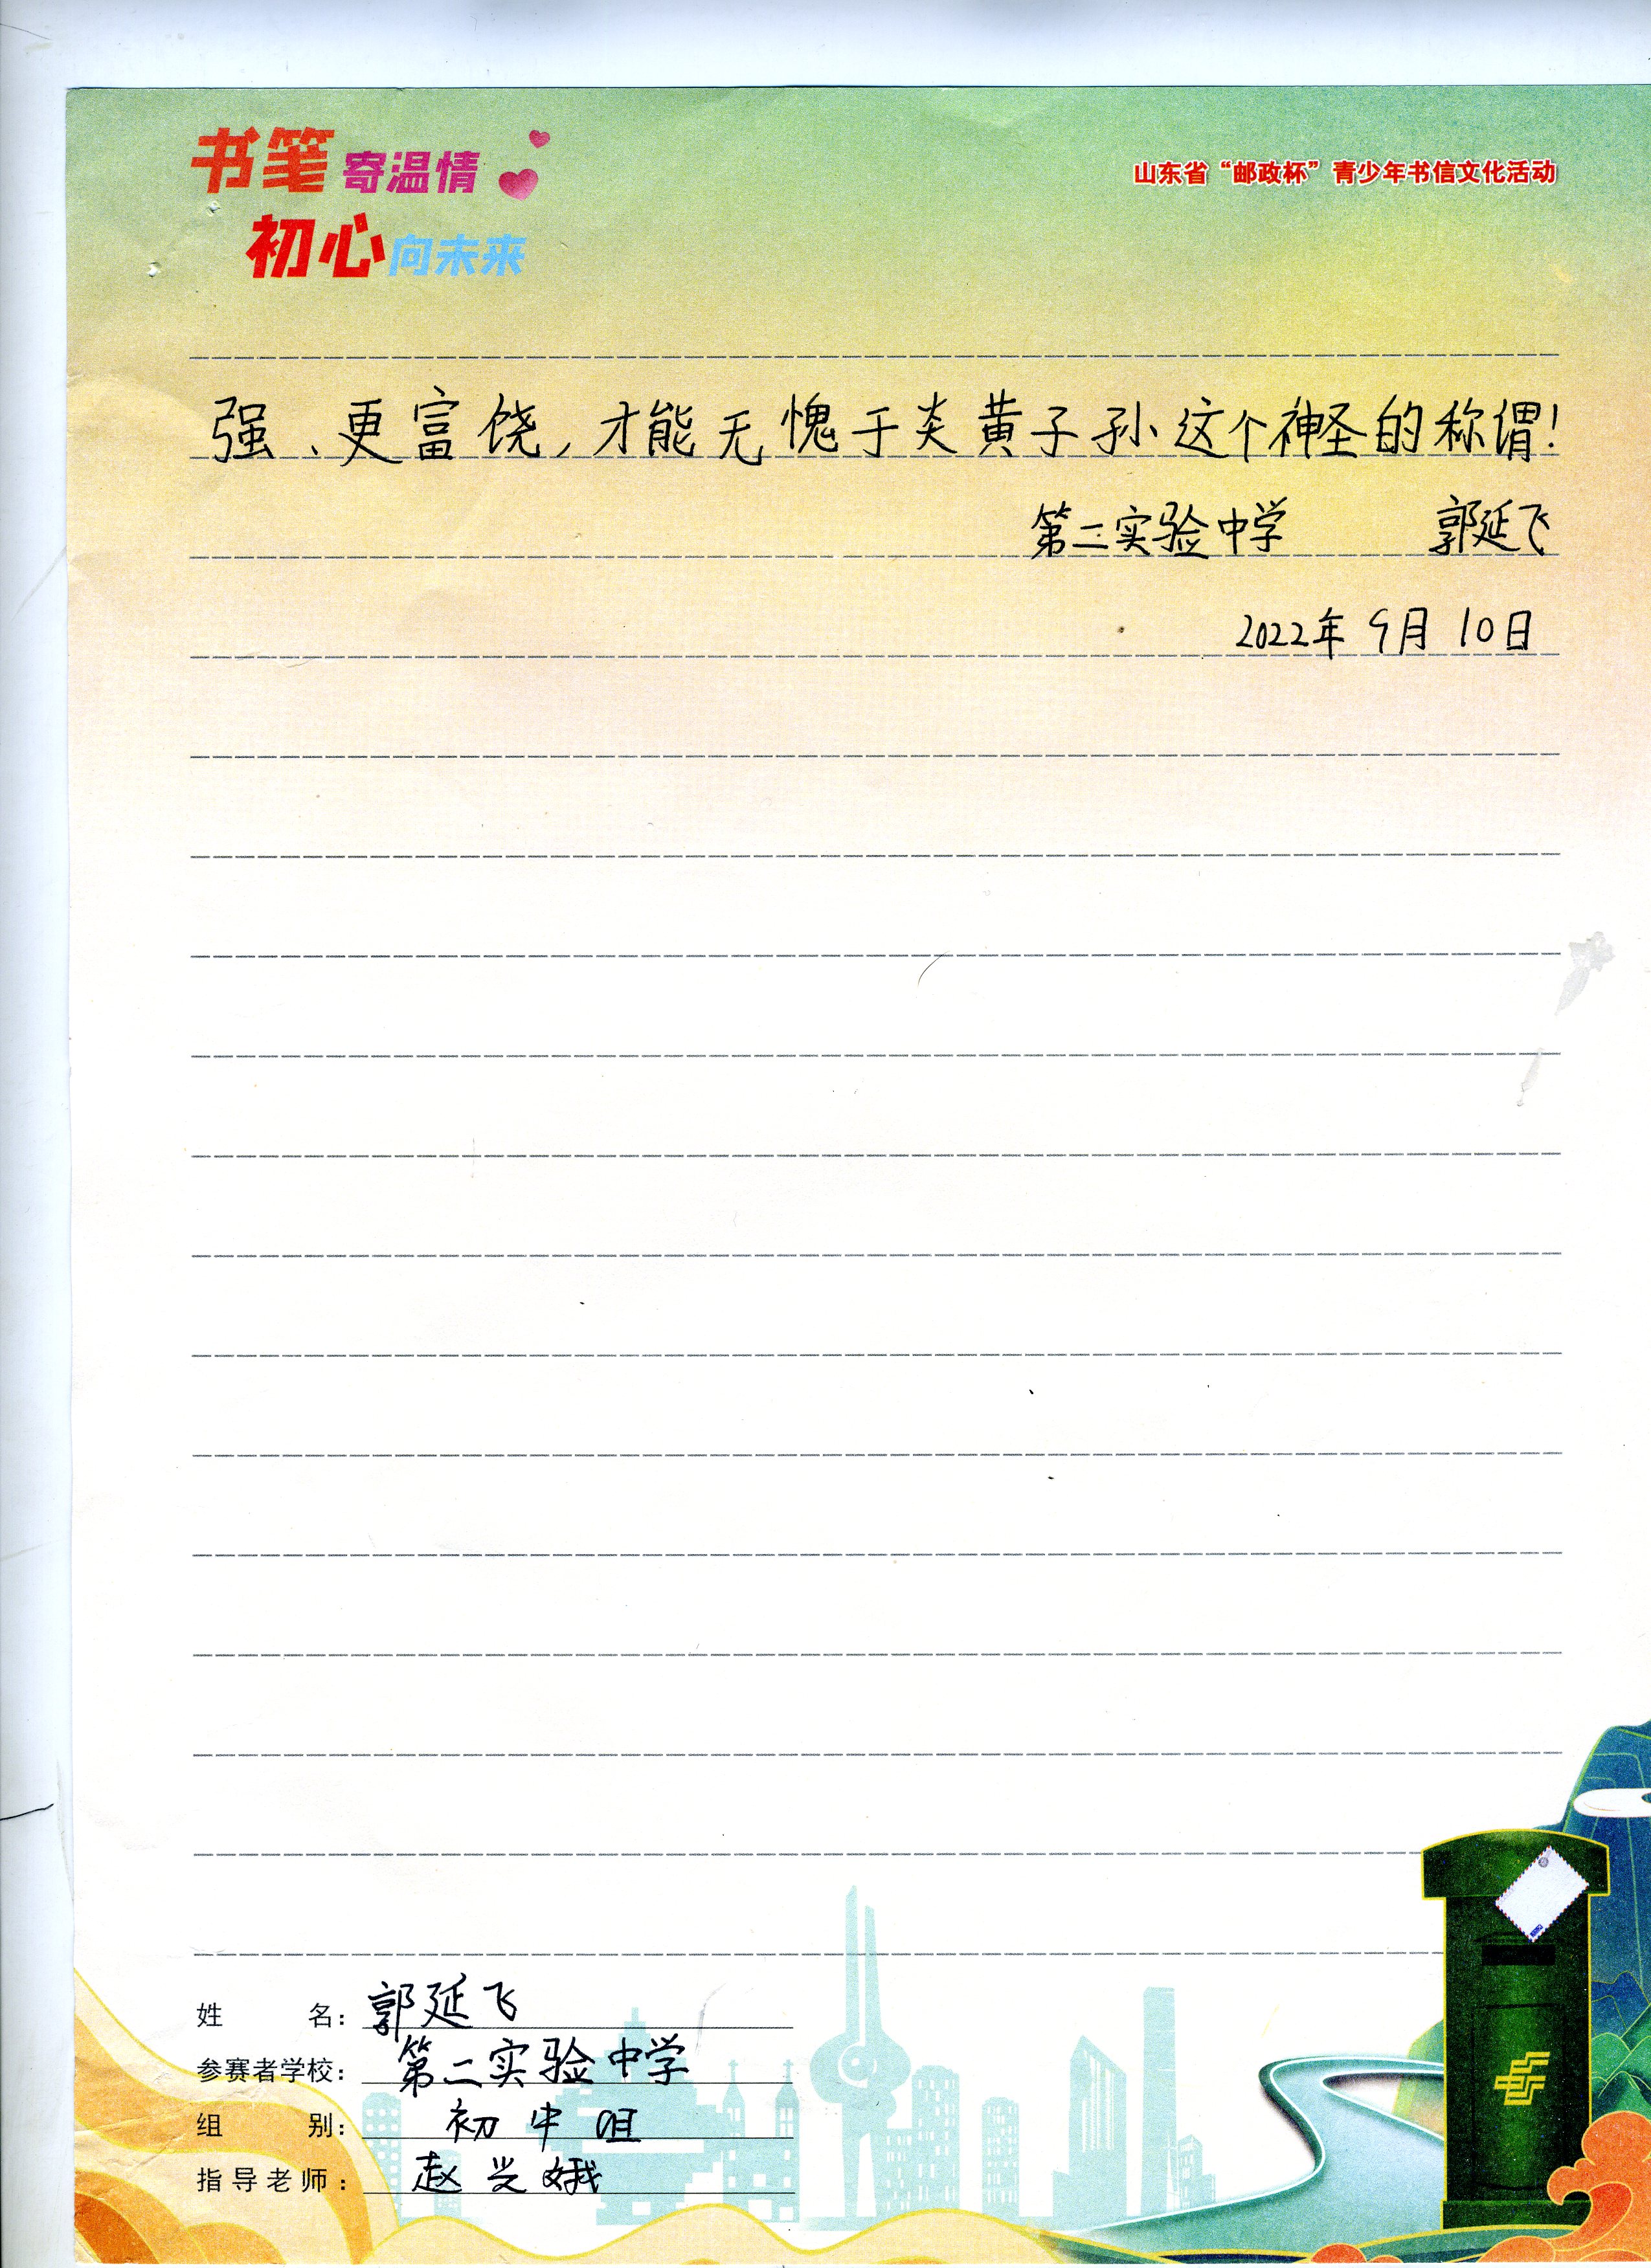 书笔寄温情
初心向未来
山东省“邮政杯”青少年书信文化活动
强、更富饶，才能无愧于炎黄子孙这个神圣的称谓！
第二实验中学 郭延飞
2022年9月10日
姓名：郭延飞
参赛者学校：第二实验中学
组别：初中咀
指导老师：赵兴娥